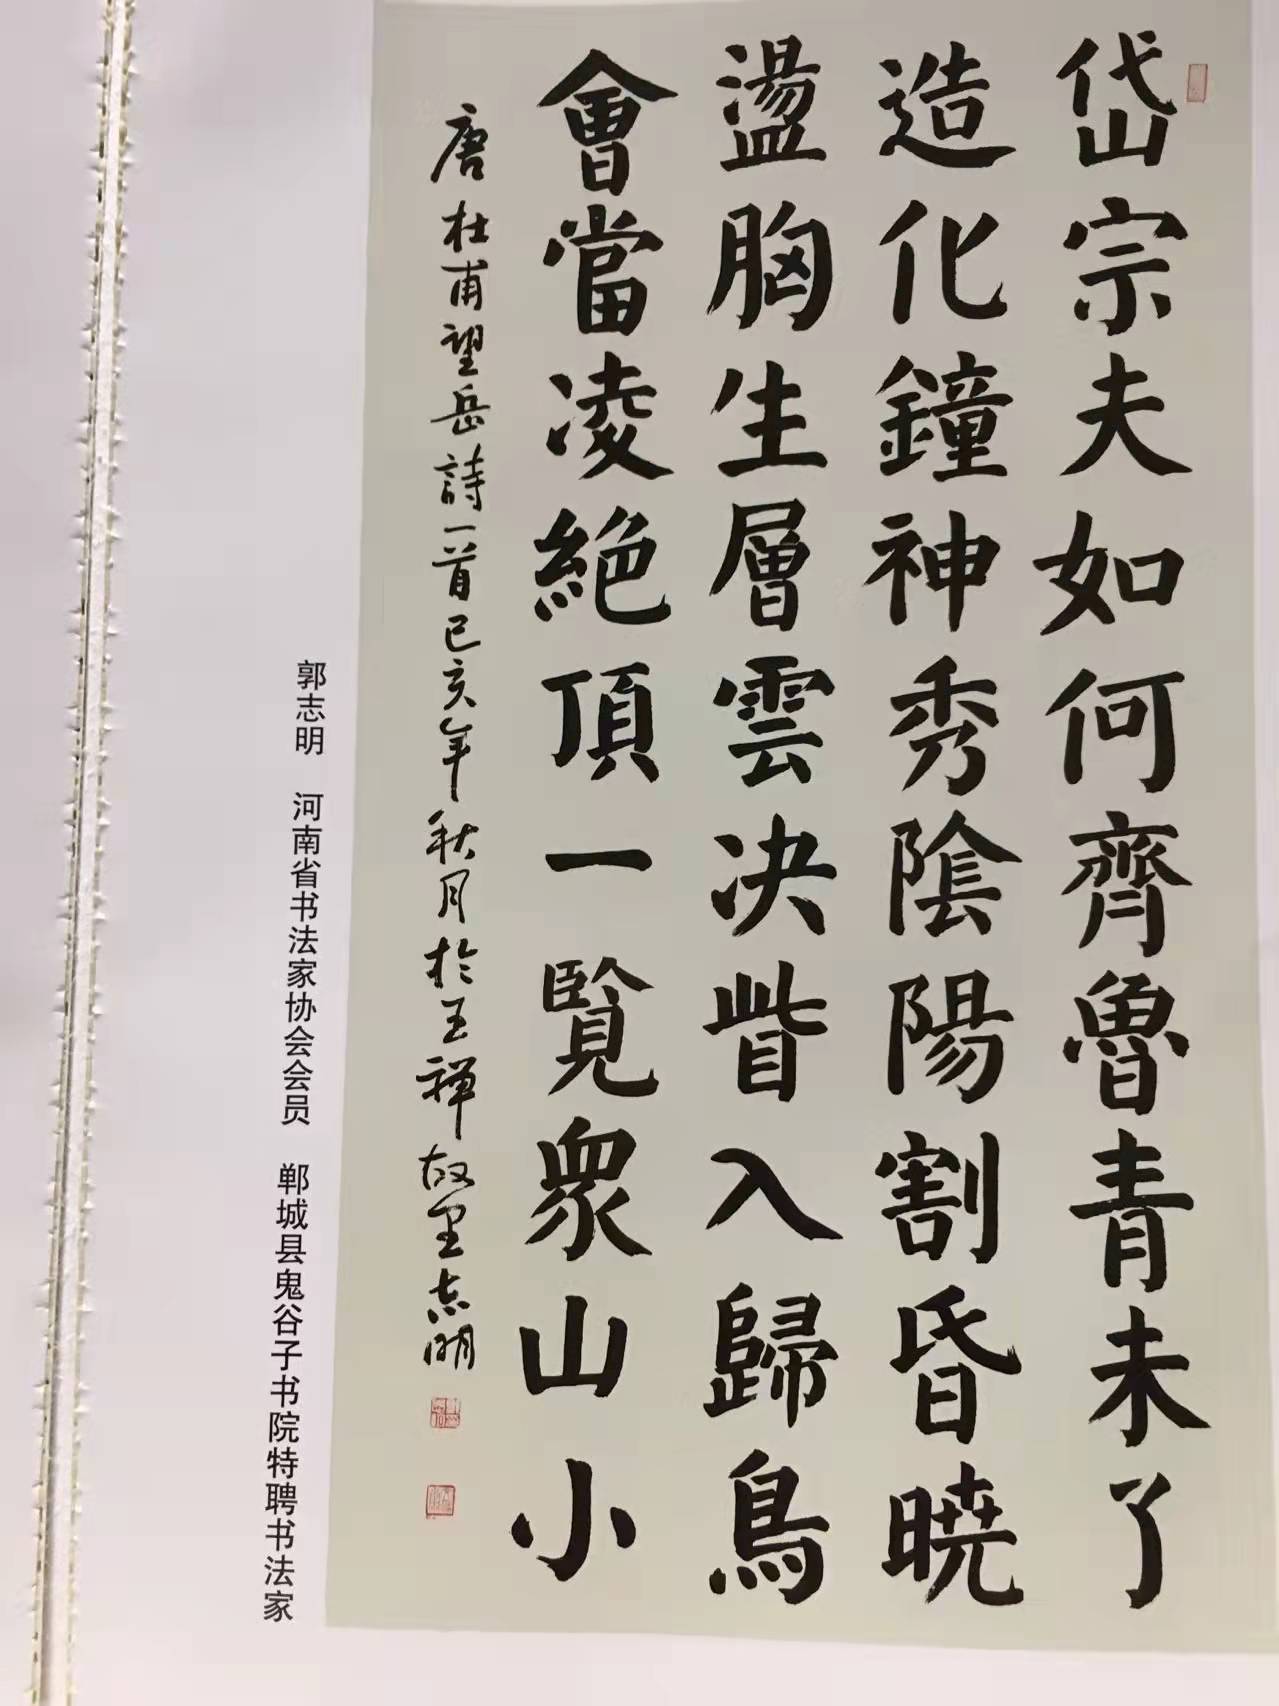 岱宗夫如何齊魯青未了
造化鐘神秀陰陽割昏曉
盪胸生層雲决眥入歸鳥
會當凌絕頂一覧眾山小
唐杜甫望岳詩一首己亥年秋月於王禅故里志明
郭志明 河南省书法家协会会员 郸城县鬼谷子书院特聘书法家